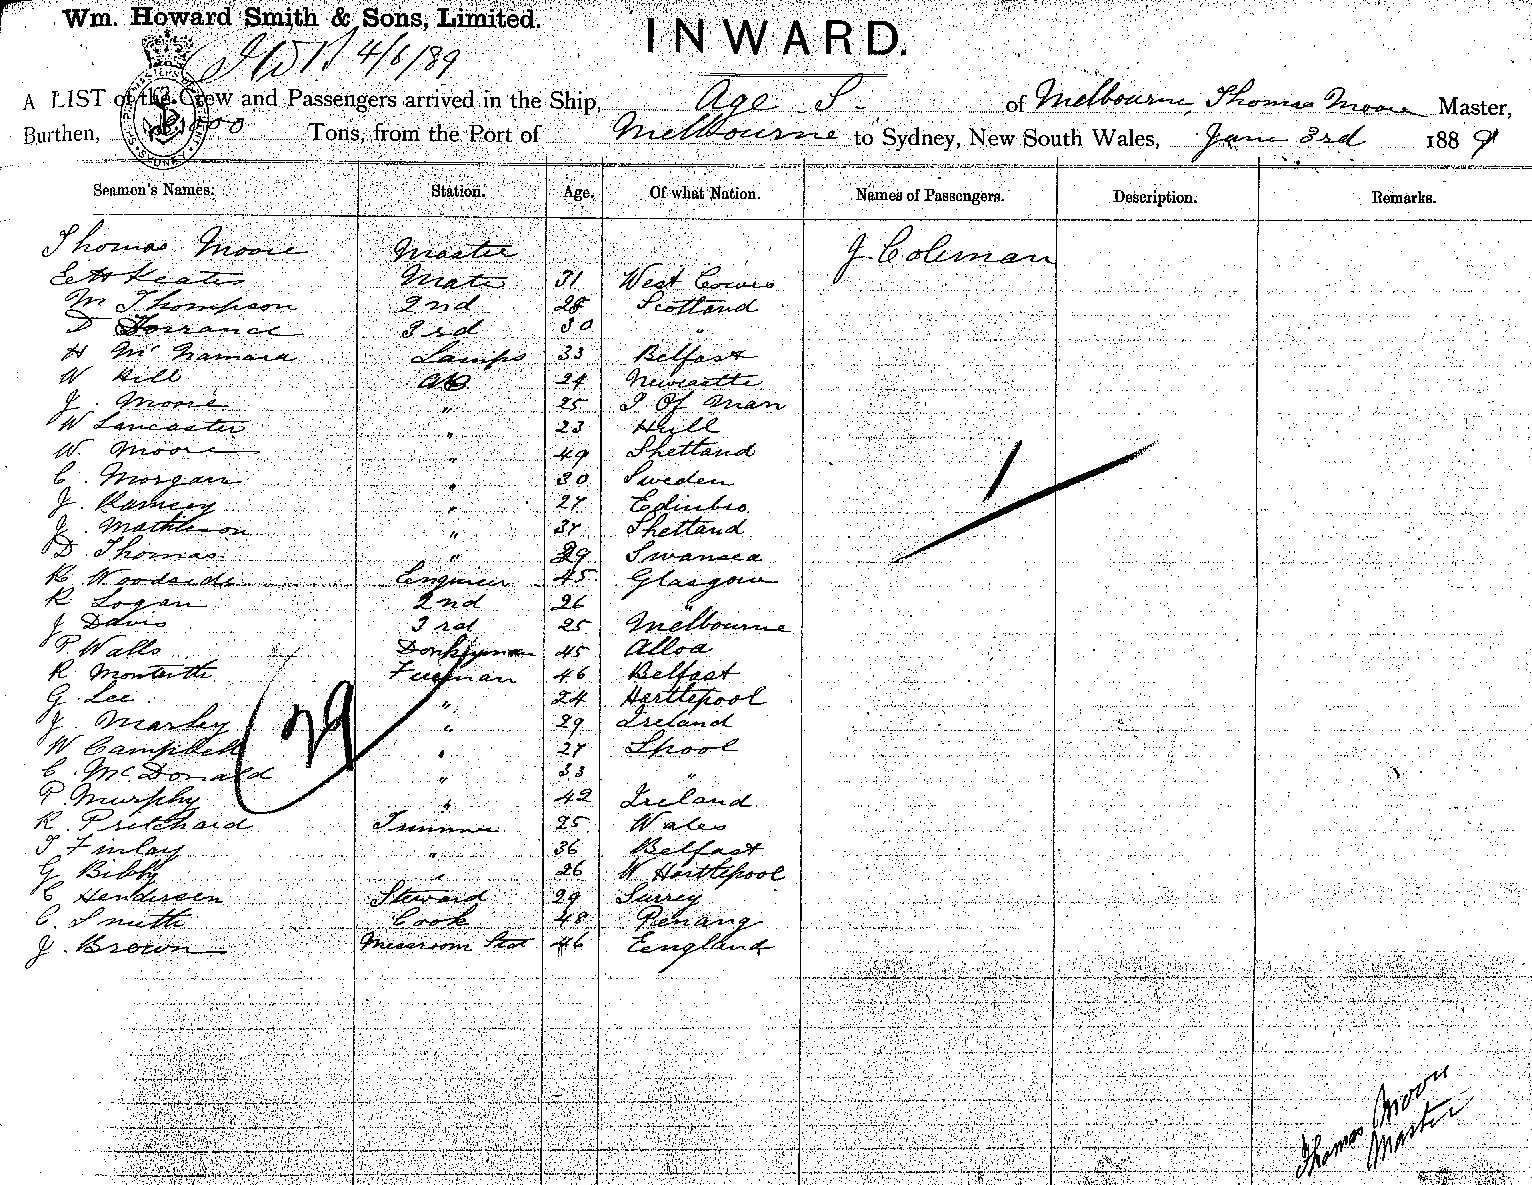 Wm. Howard Smith & Sons, Limited.
INWARD.
4/6/89
A LIST of the Crew and Passengers arrived in the Ship, Age S. of Melbourne, Thomas Moore Master,
Burthen, Tons, from the Port of Melbourne to Sydney, New South Wales, June 3rd 1889
Seamen's Names. Station. Age. Of what Nation. Names of Passengers. Description. Remarks.
Thomas Moore Master J Coleman
E H Keates Mate 31 West Cowes
M Thompson 2nd 28 Scotland
D Torrance 3rd 30 "
H McNamara Lamps 33 Belfast
W Hill AB 24 Newcastle
J. Moore " 25 I Of Man
W Lancaster " 23 Hull
W. Moore " 49 Shetland
C. Morgan " 30 Sweden
J. Ramsey " 27 Edinbro
J. Mathieson " 37 Shetland
D. Thomas " 29 Swansea
R. Woodside Engineer 45 Glasgow
R Logan 2nd 26 "
J Davis 3rd 25 Melbourne
P Walls Donkeyman 45 Alloa
R Monteith Fireman 46 Belfast
G Lee " 24 Hartlepool
J. Marley " 29 Ireland
W Campbell " 27 Lpool
C. McDonald " 33 "
P. Murphy " 42 Ireland
R. Pritchard Trimmer 25 Wales
T Finlay " 36 Belfast
G Bibby " 26 W Hartlepool
C Hendersen Steward 29 Surrey
C. Smith Cook 48 Penang
J. Brown Messroom Stwd 46 England
29
1
Thomas Moore
Master